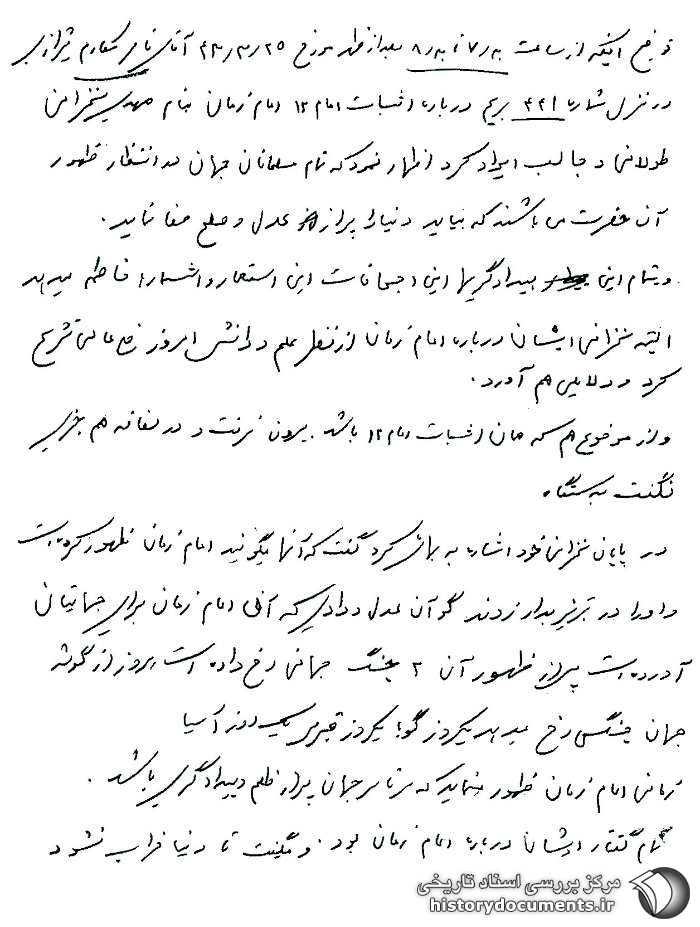 توضیح اینکه از ساعت ۷ر۵ تا ۸ر۵ بعدازظهر مورخ ۲۵ر۳ر۴۳ آقای ناصر مکارم شیرازی
در منزل شماره ۴۴۱ بریم درباره اثبات امام ۱۲ امام زمان بنام مهدی سخنرانی
طولانی و جالب ایراد کرد اظهار نمود که تمام مسلمانان جهان در انتظار ظهور
آن حضرت می باشند که بیاید دنیا را پر از عدل و صلح صفا نماید.
و تمام این بیدادگریها این اجحافات این استعمار و استثمار را خاتمه میدهد
البته سخنرانی ایشان درباره امام زمان از نظر علم و دانش امروز نوع عالی تشریح
کرد و دلایلی هم آورد.
و از موضوع هم که همان اثبات امام ۱۲ باشد بیرون نرفت و در لفافه هم چیزی
نگفت به دستگاه
در پایان سخنرانی خود اشاره به بهائی کرد گفت که آنها میگویند امام زمان ظهور کرده است
و او را در تبریز بدار زدند کو آن عدل و دادی که آقای امام زمان برای جهانیان
آورده است پس از ظهور آن ۲ جنگ جهانی رخ داده است هر روز از گوشه
جهان جنگی رخ میدهد یکروز کوبا یکروز قبرس یک روز آسیا
زمانی امام زمان ظهور مینماید که سرتاسر جهان پر از ظلم و بیدادگری باشد.
تمام گفتار ایشان درباره امام زمان بود. و میگفت تا دنیا خراب نشود
مرکز بررسی اسناد تاریخی
historydocuments.ir